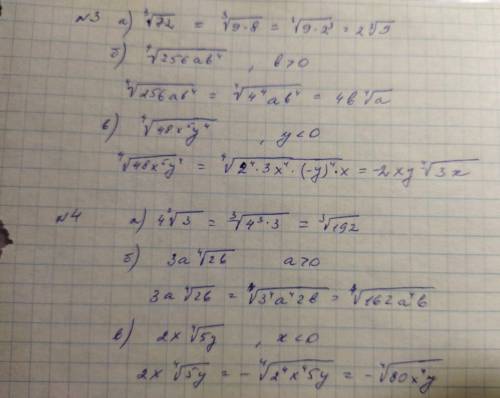 №3 а) ∛72 = ∛(9·8) = ∛(9·2³) = 2∛9
б) ⁴√(256ab⁴) , b>0
⁴√(256ab⁴) = ⁴√(4⁴ab⁴) = 4b ⁴√a
в) ⁴√(48x⁵y⁴) , y<0
⁴√(48x⁵y⁴) = ⁴√(2⁴·3x⁴·(-y)⁴·x) = -2xy ⁴√(3x)
№4 а) 4∛3 = ∛(4³·3) = ∛192
б) 3a ⁴√(2b) a>0
3a ⁴√(2b) = ⁴√(3⁴a⁴2b) = ⁴√(162a⁴b)
в) 2x ⁴√(5y) , x<0
2x ⁴√(5y) = -⁴√(2⁴x⁴5y) = -⁴√(80x⁴y)